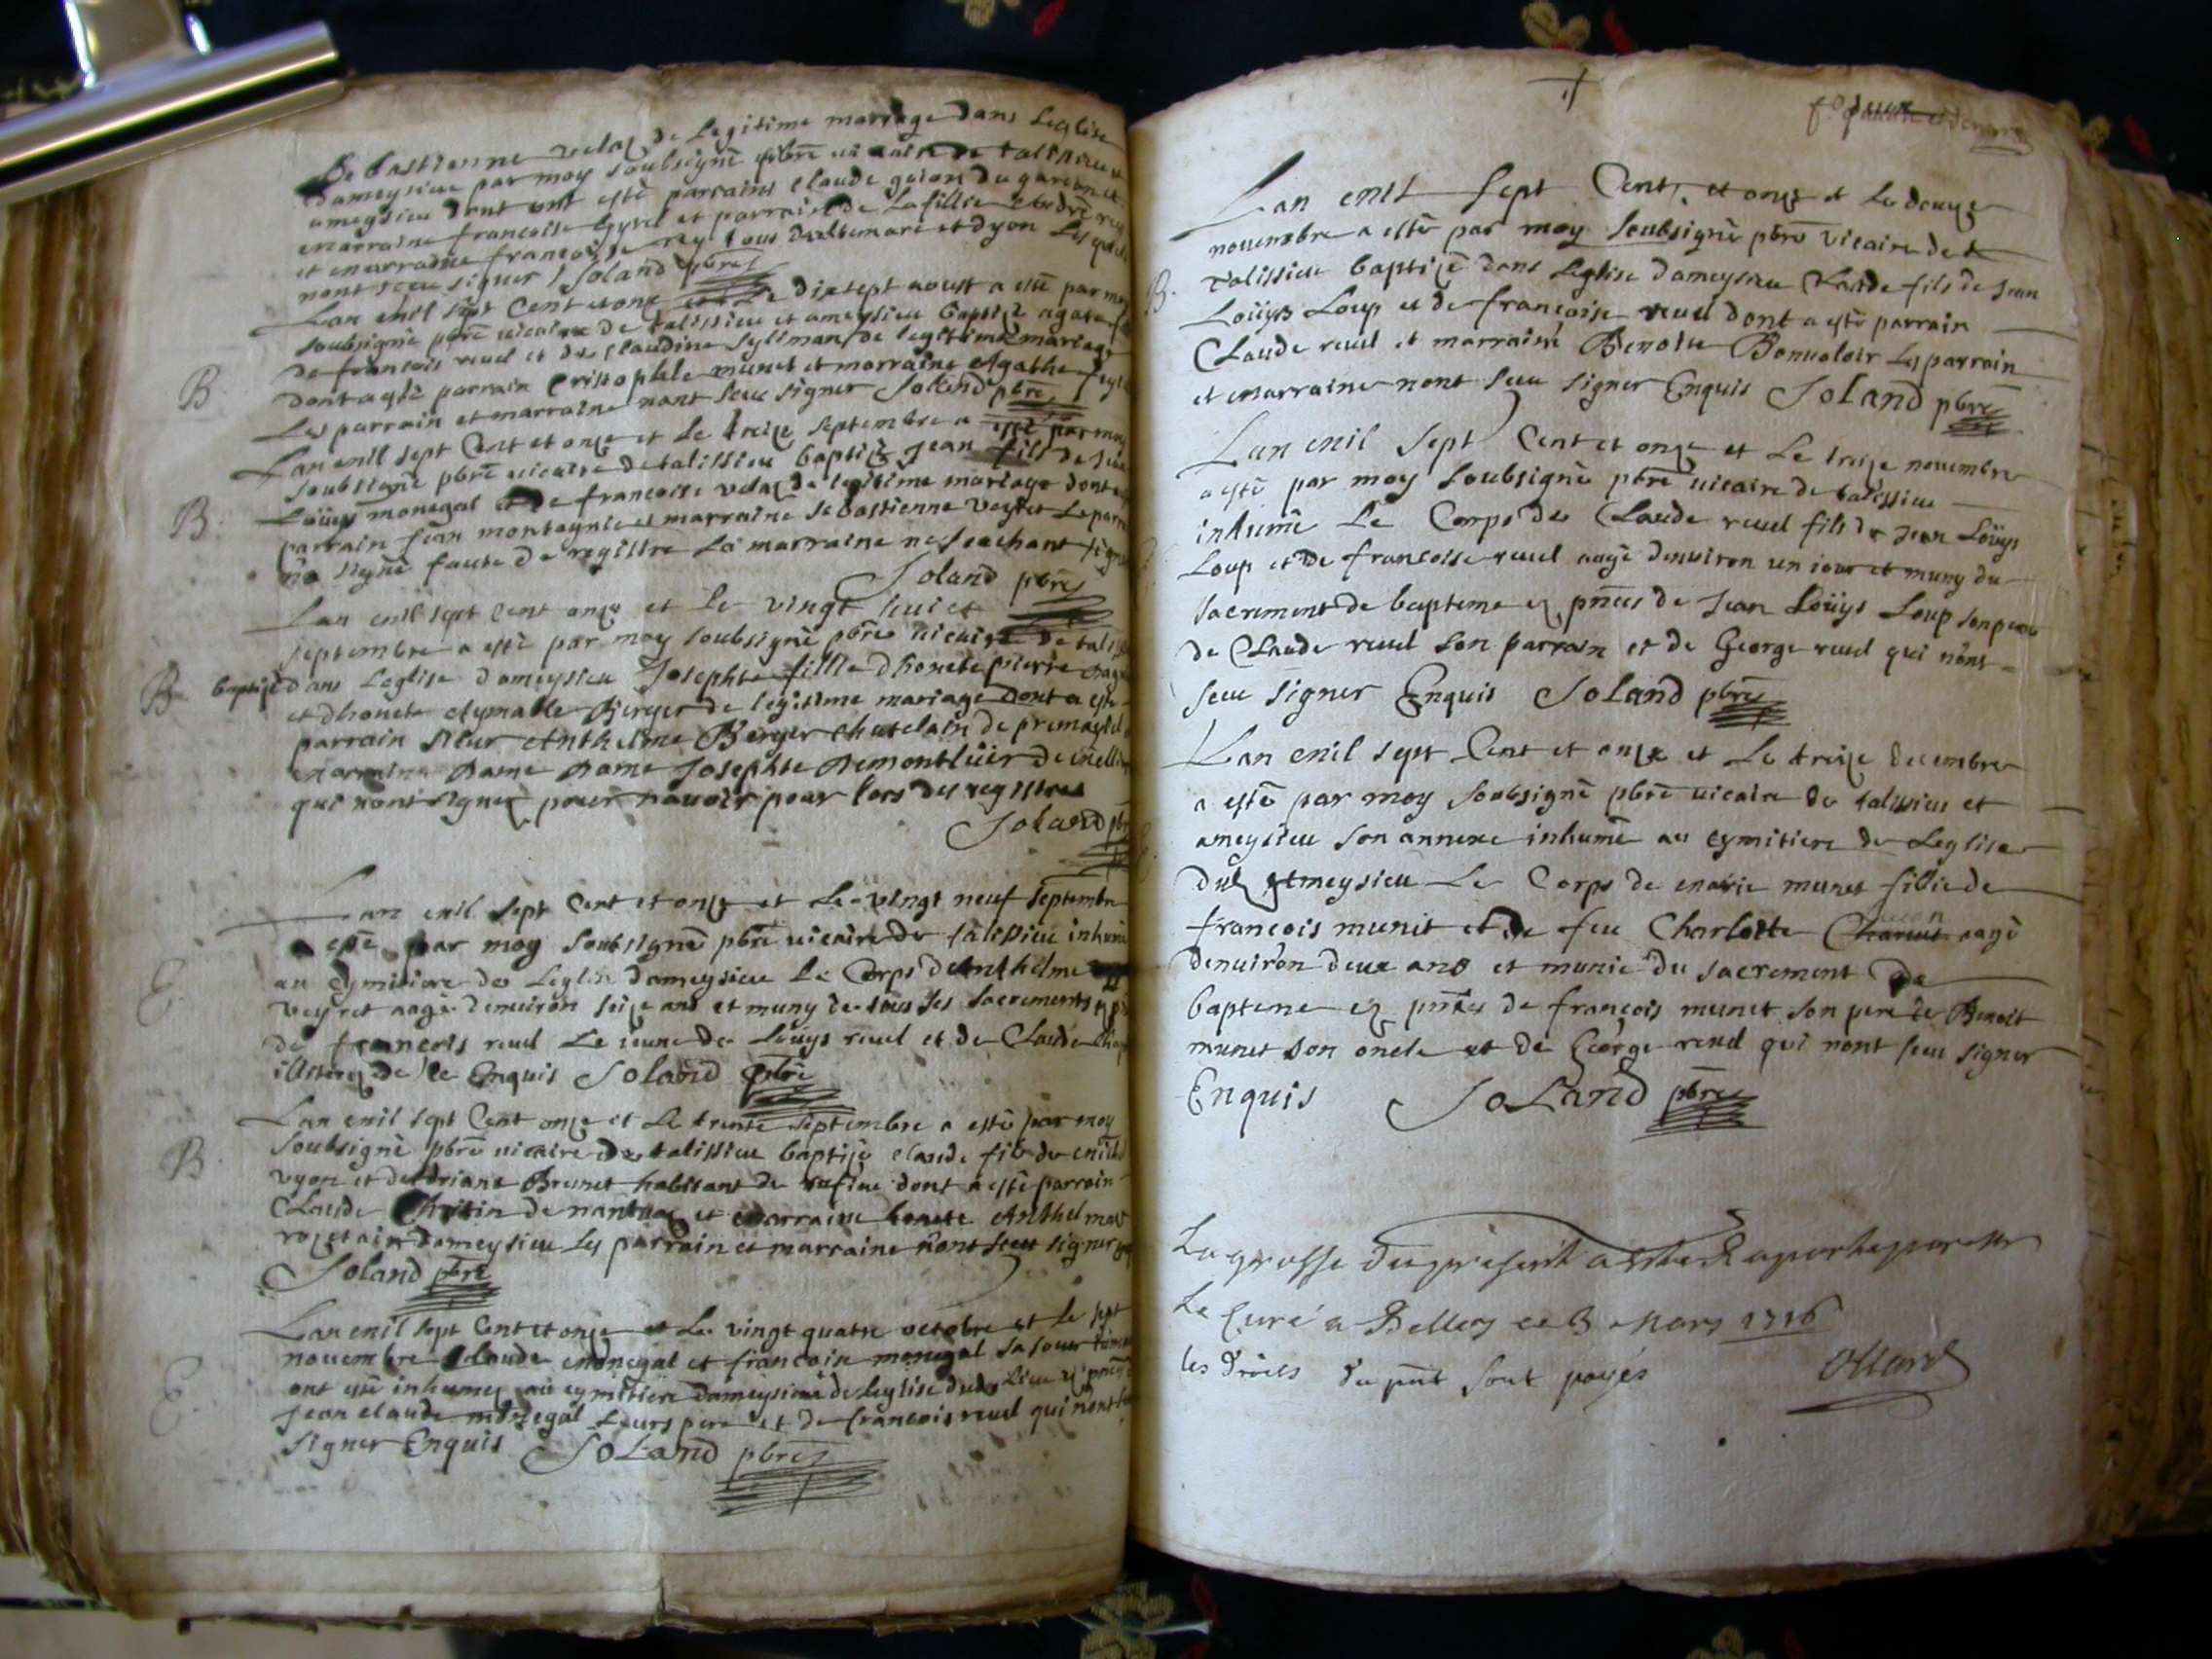 De bastienne velaz de legitime mariage dans leglise
dameysieu par moy soubsigné pbre vicaire de talissieu
ameysieu dont ont esté parrains claude guion du garcon et
marraine francoise et parrain de la fillie
et marraine francoise rey tous dartemare et dyon les quels
nont sceu signer Soland pbre
Lan mil sept Cent et onze et le dix sept aoust a esté par moy
soubsigné pbre vicaire de talissieu et ameysieu baptizé agathe
de francois reud et de claudine de legitime mariage
B. dont a esté parrain cristophle munet et marraine Agathe
Les parrain et marraine nont sceu signer Soland pbre
Lan mil sept Cent et onze et le treize septembre a esté par moy
soubsigné pbre vicaire de talissieu baptizé Jean fils de
B. Louys monegal et de francoise velaz de legitime mariage dont
parrain Jean montagnie et marraine sebastienne veyret Le parrain
na signé faute de registre La marraine ne scachant signer
Soland pbre
Lan mil sept Cent onze et le vingt huict
septembre a esté par moy soubsigné pbre vicaire de
B. baptizé dans Leglise dameysieu Josephte fillie dhonete pierre
et dhonete aymable Berger de legitime mariage dont a esté
parrain sieur Anthelme Berger chatelain de
marraine Dame Dame Josephte Demontlüer de
qui nont signez pour navoir pour lors des registres
Soland pbre
Lan mil sept Cent et onze et Le vingt neuf septembre
a esté par moy soubsigné pbre vicaire de talissieu inhumé
au cymitiere de Leglise dameysieu Le Corps dAnthelme
E. veyret aagé denviron seize ans et muny de tous ses sacrements
de francois reud Le ieune de Louys reud et de Claude
illiterez de ce Enquis Soland pbre
Lan mil sept Cent onze et Le trente septembre a esté par moy
soubsigné pbre vicaire de talissieu baptizé claude fils de
B. vyon et dadriane Brunet habitant de rufieu dont a esté parrain
Claude de nantuaz et marraine honete Anthelmaz
dameysieu Les parrain et marraine nont sceu signer
Soland pbre
Lan mil sept Cent et onze et Le vingt quatre octobre et le sept
novembre Claude monegal et francoise monegal sa soeur
ont esté inhumez au cymitiere dameysieu de Leglise dud. Lieu
E. Jean claude monegal Leurs pere et de francois reud qui nont
signer Enquis Soland pbre
Lan mil sept Cent et onze et Le douze
novembre a esté par moy soubsigné pbre vicaire de
B. talissieu baptizé dans Leglise dameysieu Claude fils de Jean
Louys Loup et de francoise reud dont a esté parrain
Claude reud et marraine Benoite Bonvaloir Les parrain
et marraine nont sceu signer Enquis Soland pbre
Lan mil sept Cent et onze et Le treize novembre
a esté par moy soubsigné pbre vicaire de talissieu
inhumé Le Corps de Claude reud fils de Jean Louys
Loup et de francoise reud aagé denviron un iour et muny du
sacrement de bapteme ez pnces de Jean Louys Loup son pere
de Claude reud son parrain et de George reud qui nont
sceu signer Enquis Soland pbre
Lan mil sept Cent et onze et Le treize decembre
a esté par moy soubsigné pbre vicaire de talissieu et
ameysieu son annexe inhumé au cymitiere de Leglise
dud. Ameysieu Le Corps de marie munet fillie de
francois munit et de feu Charlotte aagé
denviron deux ans et munie du sacrement de
bapteme ez pnces de francois munet son pere de Benoit
munet son oncle et de George reud qui nont sceu signer
Enquis Soland pbre
La grosse du present a esté aporté par Mr
Le Curé a Belley ce 3 Mars 1716
les droits du pnt sont payés